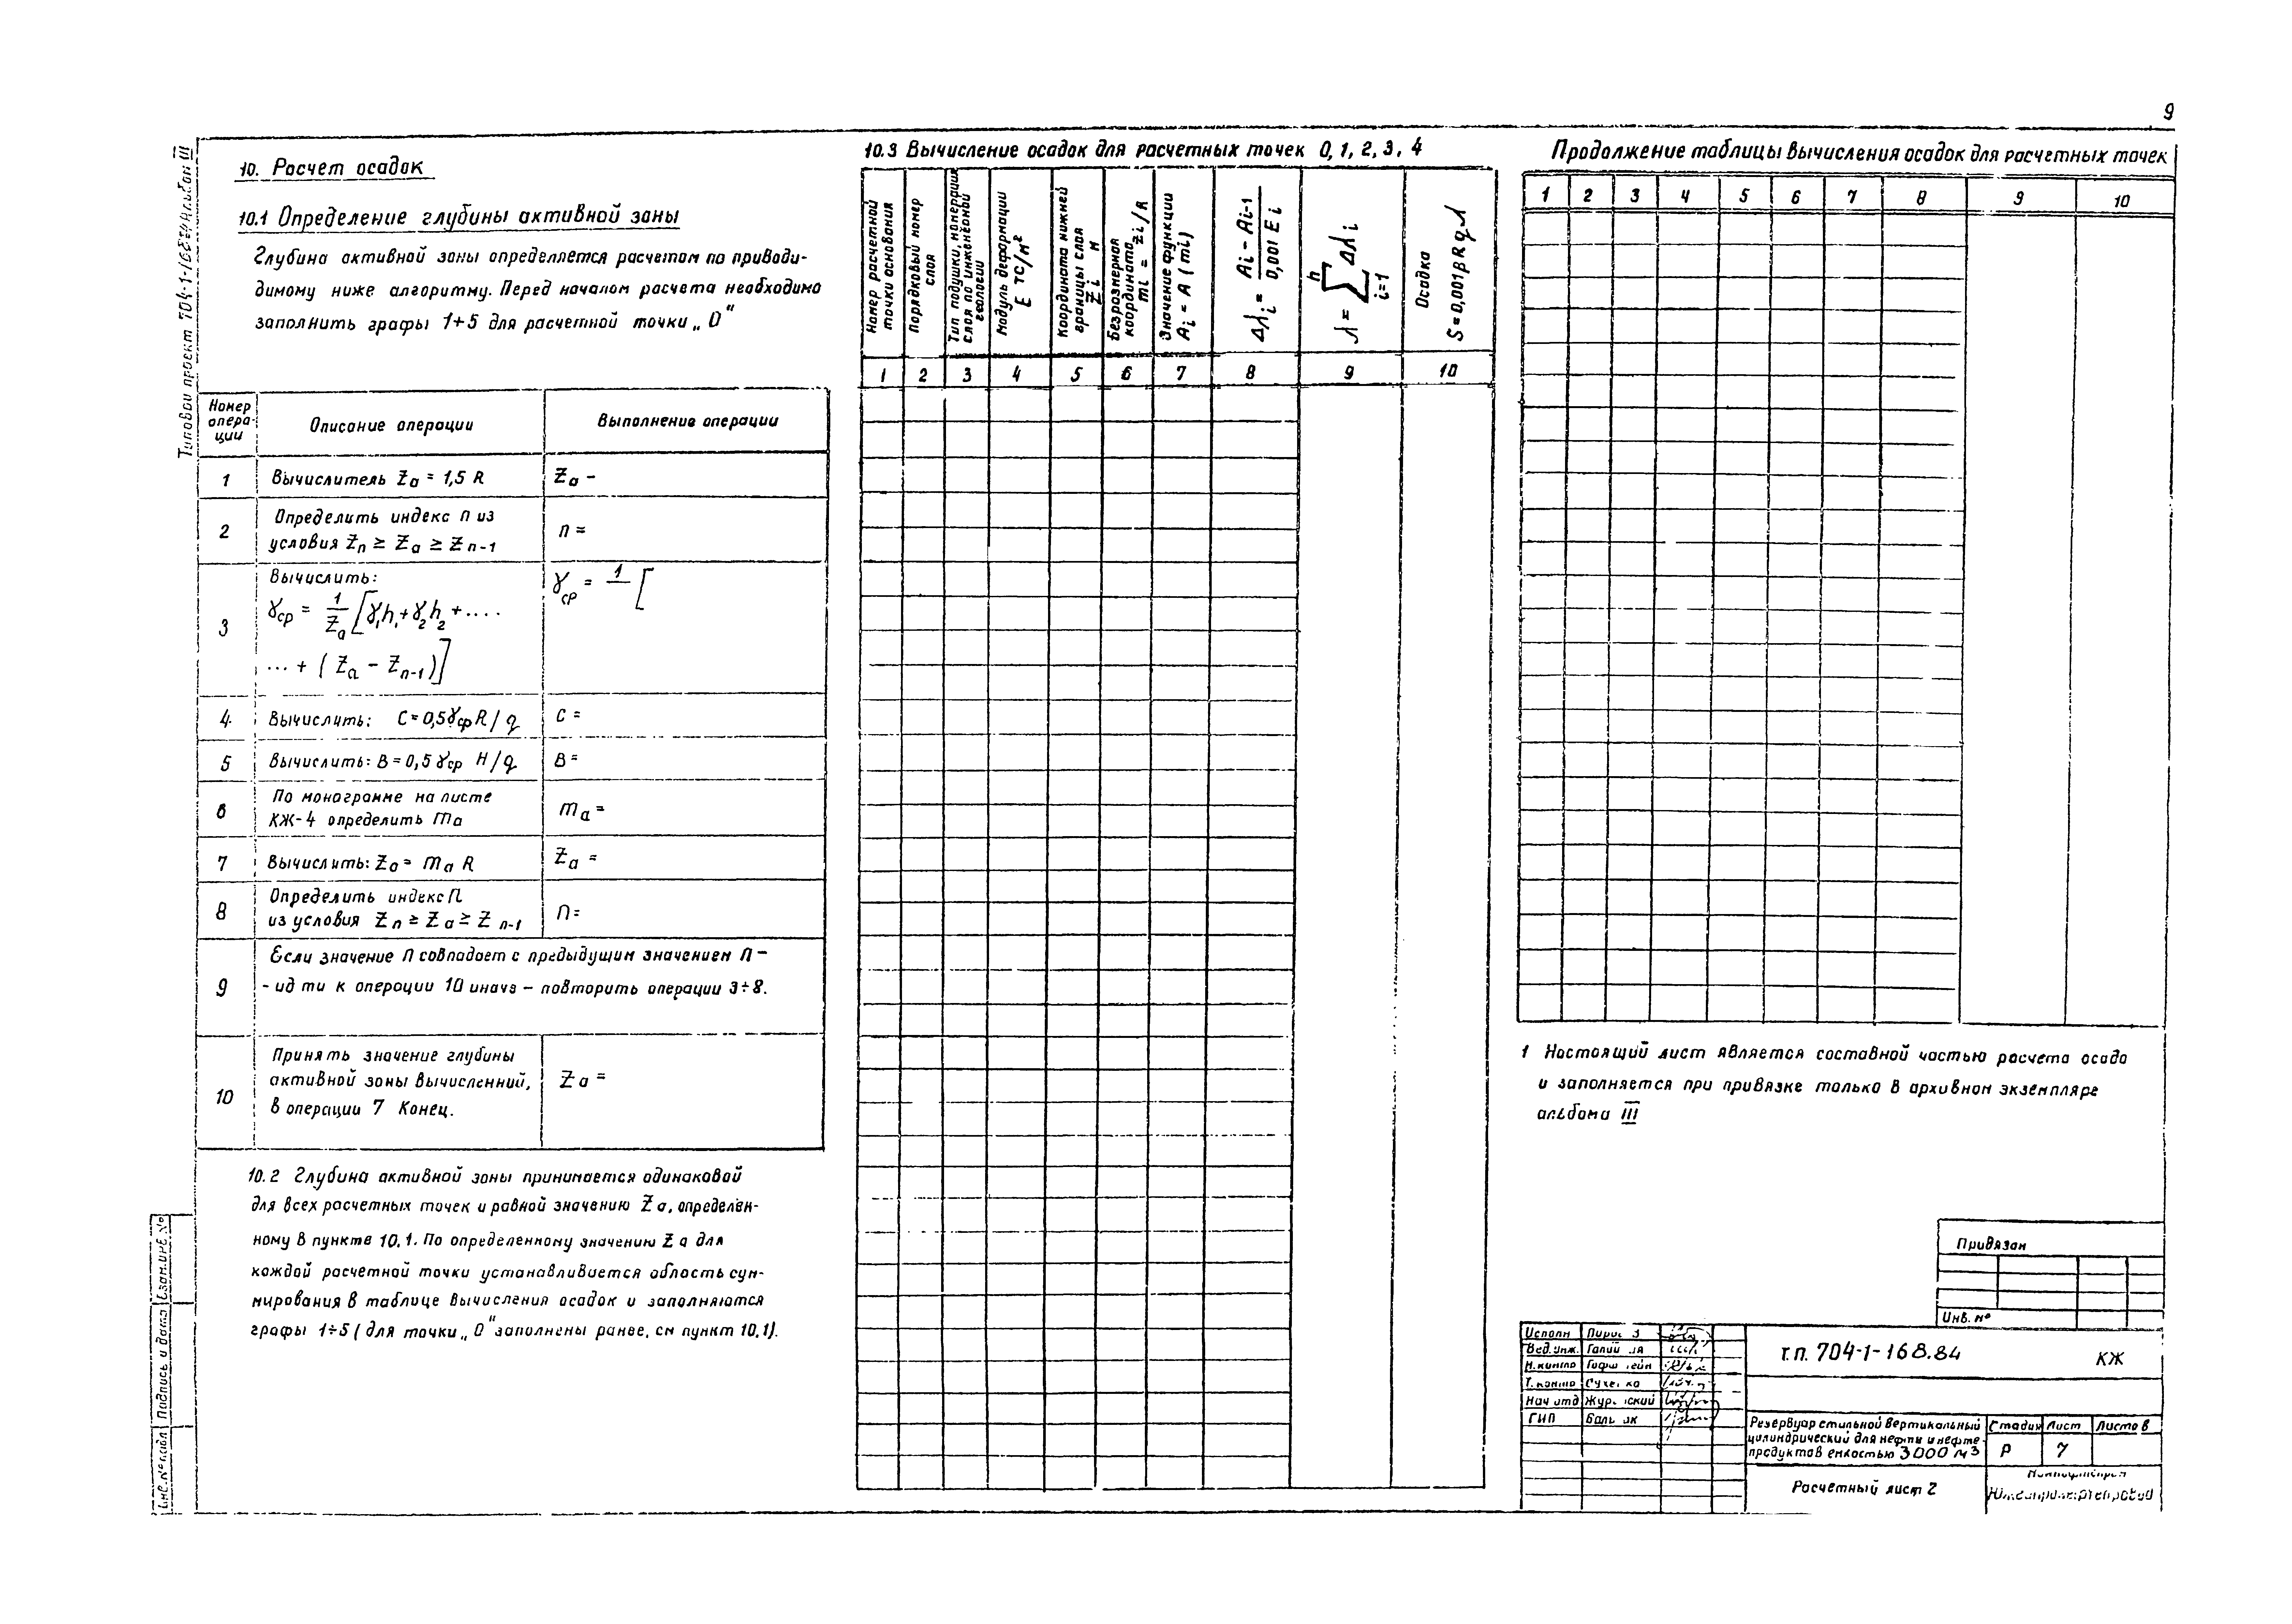 9
Типовой проект 704-1-168.84 Альбом III
10. Расчет осадок
10.1 Определение глубины активной зоны
Глубина активной зоны определяется расчетом по приводи-
димому ниже алгоритму. Перед началом расчета необходимо
заполнить графы 1÷5 для расчетной точки „ 0 "
Номер опера- ции
Описание операции
Выполнение операции
1 Вычислитель Za = 1,5 R Za -
2 Определить индекс n из
условия Zn ≥ Za ≥ Zn-1 n =
3 Вычислить:
γср = 1/Za [γ1h1+γ2h2+....
...+ (Za - Zn-1)]
γср = 1/ [
4. Вычислить: C=0,5γср R/q C =
5 Вычислить: B=0,5 γср H/q B=
6 По монограмме на листе
КЖ-4 определить ma ma =
7 Вычислить: Za= ma R Za =
8 Определить индекс n
из условия Zn ≥ Za ≥ Z n-1 n=
9 Если значение n совпадает с предыдущим значением n -
- идти к операции 10 иначе - повторить операции 3÷8.
10 Принять значение глубины
активной зоны вычисленний,
в операции 7 Конец. Za =
10.2 Глубина активной зоны принимается одинаковой
для всех расчетных точек и равной значению Za, определен-
ному в пункте 10.1. По определенному значению Za для
каждой расчетной точки устанавливается область сум-
мирования в таблице вычисления осадок и заполняются
графы 1÷5 ( для точки „ 0 " заполнены ранее, см пункт 10.1).
10.3 Вычисление осадок для расчетных точек 0, 1, 2, 3, 4
Номер расчетной точки основания
Порядковый номер слоя
Тип подушки, номер слоя по инженерной геологии
Модуль деформации E тс/м²
Координата нижней границы слоя Zi м
Безразмерная координата mi = zi/R
Значение функции Ai = A (mi)
Δλi = Ai - Ai-1 / 0,001 Ei
λ = n Σ i=1 Δλi
Осадка S=0,001βRqλ
1 2 3 4 5 6 7 8 9 10
Продолжение таблицы вычисления осадок для расчетных точек
1 2 3 4 5 6 7 8 9 10
1 Настоящий лист является составной частью расчета осадо
и заполняется при привязке только в архивном экземпляре
альбома III
Привязан
Инв. №
Исполн
Вед. инж.
Н. контр
Т. контр
Нач отд
ГИП
Т.П. 704-1-168.84 КЖ
Резервуар стальной вертикальный
цилиндрический для нефти и нефте-
продуктов емкостью 3000 м3
Стадия Лист Листов
Р 7
Расчетный лист 2
Взам. инв. №
Подпись и дата
Инв. № подл